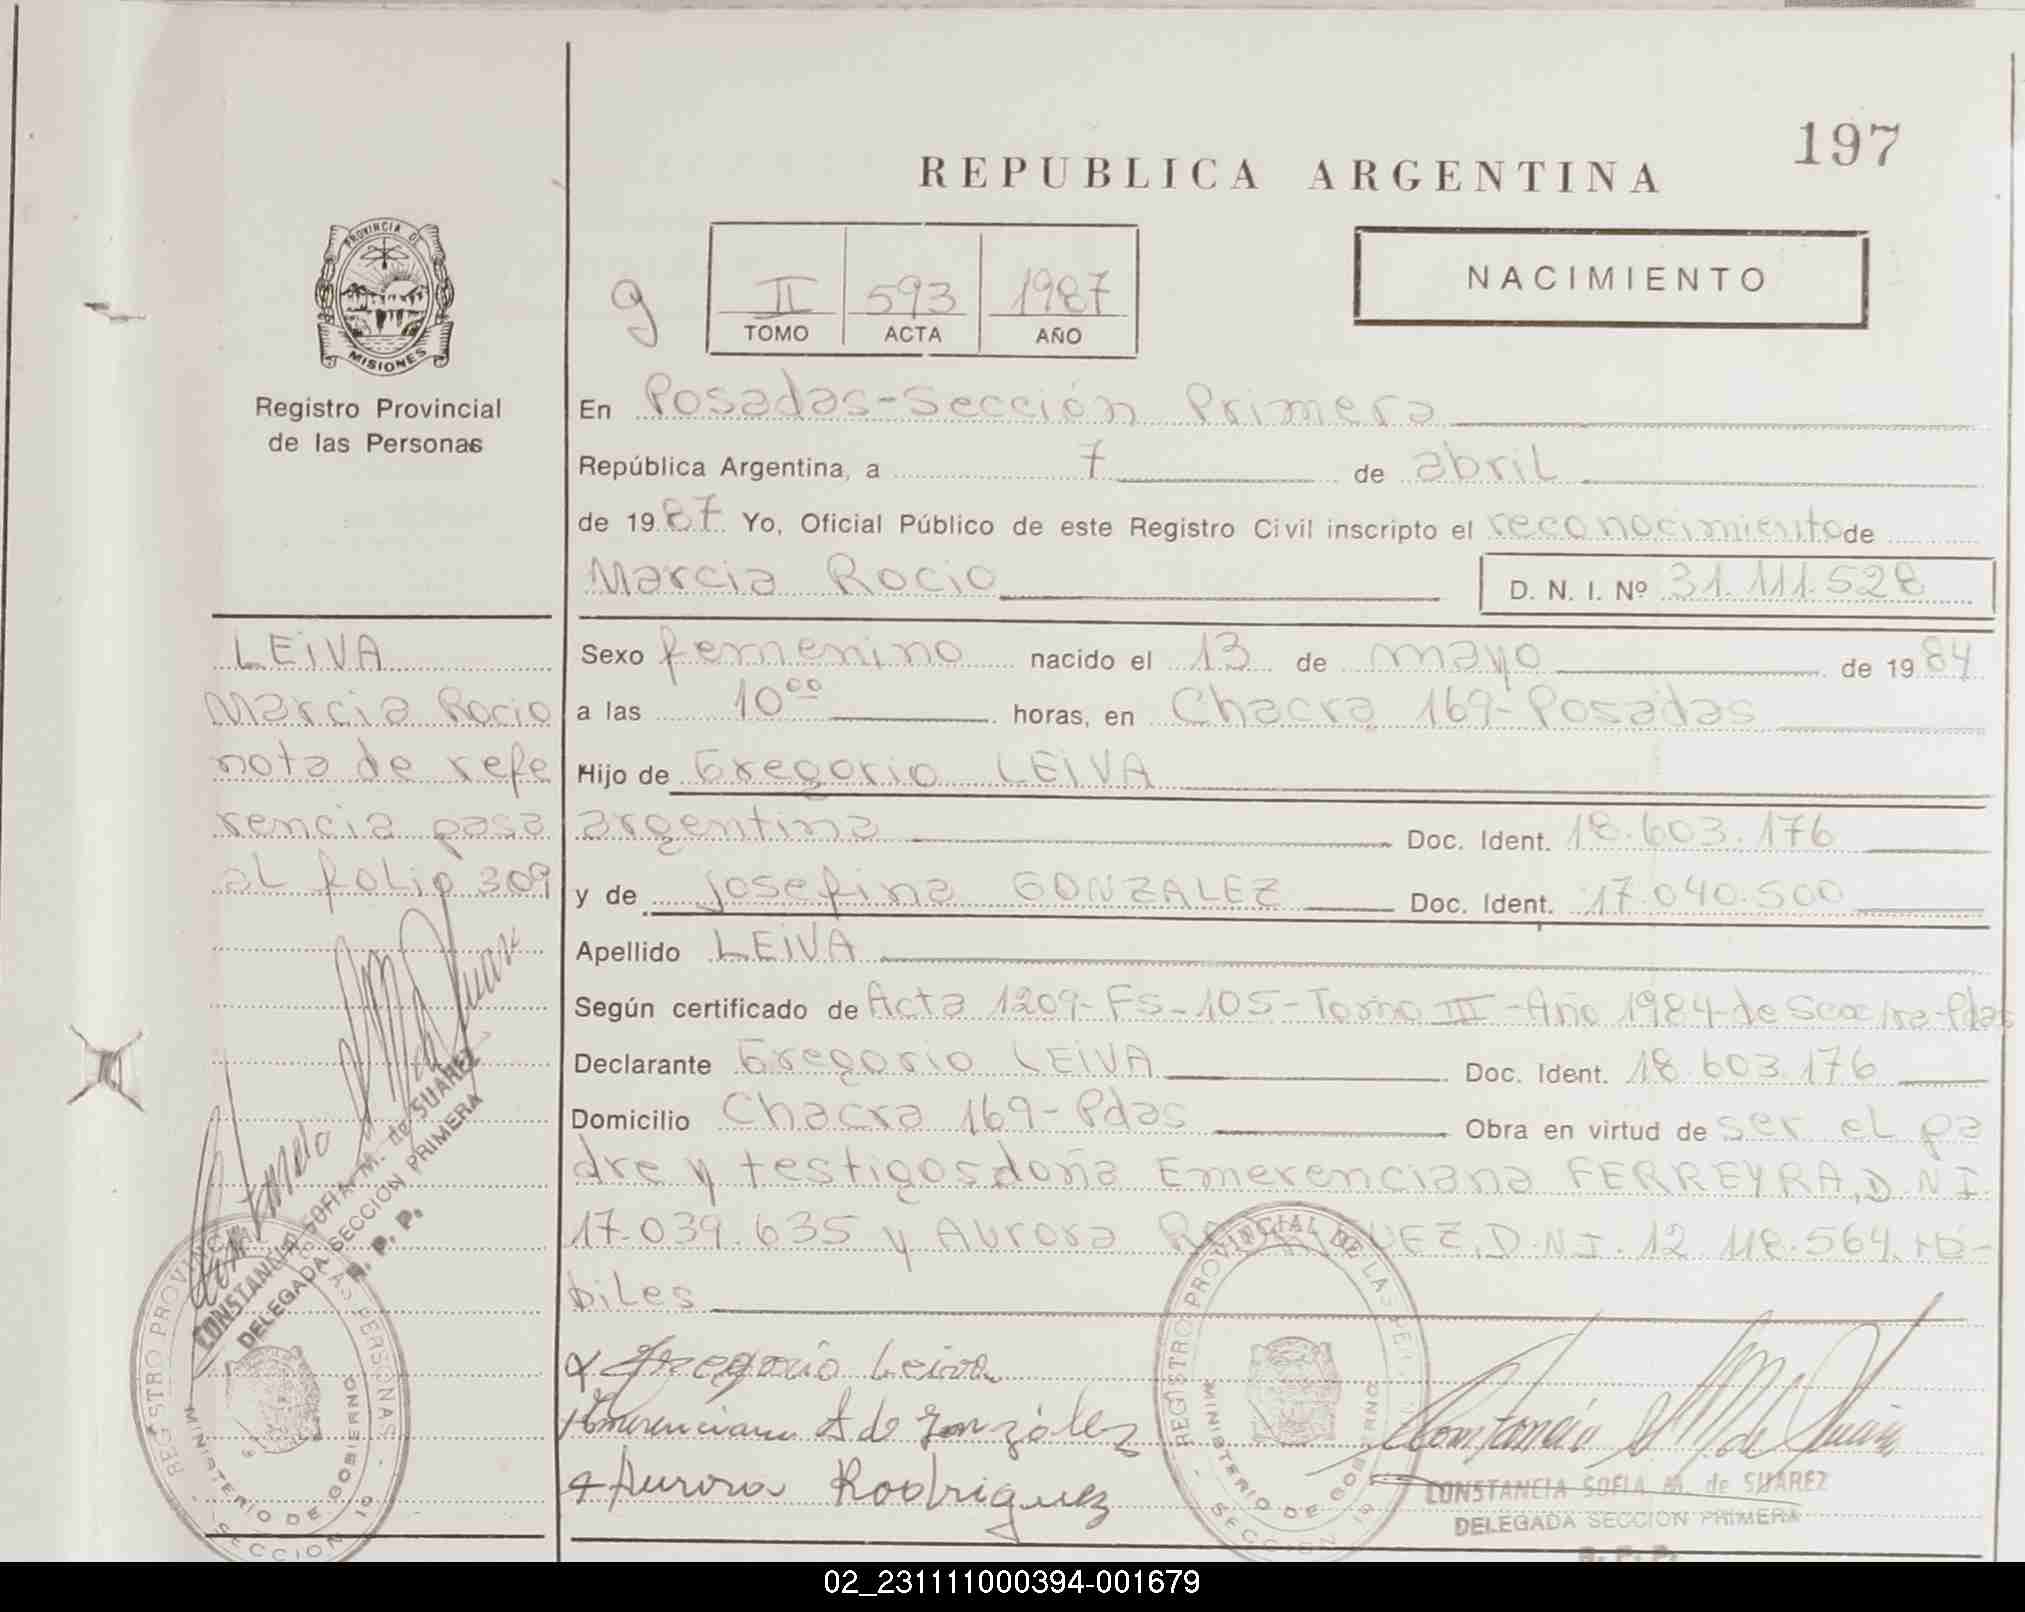 197
REPUBLICA ARGENTINA
PROVINCIA DE
MISIONES
Registro Provincial
de las Personas
g
II 593 1987
TOMO ACTA AÑO
NACIMIENTO
En Posadas-Sección Primera
República Argentina, a 7 de abril
de 1987 Yo, Oficial Público de este Registro Civil inscripto el reconocimiento de
Marcia Rocio
D. N. I. Nº 31.111.528
LEIVA
Marcia Rocio
nota de refe
rencia pasa
al folio 309
Sexo femenino nacido el 13 de mayo de 1984
a las 10 00 horas, en Chacra 169-Posadas
Hijo de Gregorio LEIVA
argentina Doc. Ident. 18.603.176
y de Josefina GONZALEZ Doc. Ident. 17.040.500
Apellido LEIVA
Según certificado de Acta 1209-Fs-105-Tomo III-Año 1984-de Secc 1ra-Pdas
Declarante Gregorio LEIVA Doc. Ident. 18.603.176
Domicilio Chacra 169-Pdas Obra en virtud de ser el pa
dre y testigos doña Emerenciana FERREYRA, D.N.I.
17.039.635 y Aurora D.N.I. 12.118.564. Há-
biles
CONSTANCIA SOFIA M. de SUAREZ
DELEGADA SECCION PRIMERA
R. P. P.
REGISTRO PROVINCIAL DE LAS PERSONAS
MINISTERIO DE GOBIERNO
SECCION 1ª
Gregorio Leiva
de González
Aurora Rodriguez
REGISTRO PROVINCIAL DE LAS PERSONAS
MINISTERIO DE GOBIERNO
SECCION 1ª
CONSTANCIA SOFIA M. de SUAREZ
DELEGADA SECCION PRIMERA
R. P. P.
02_231111000394-001679